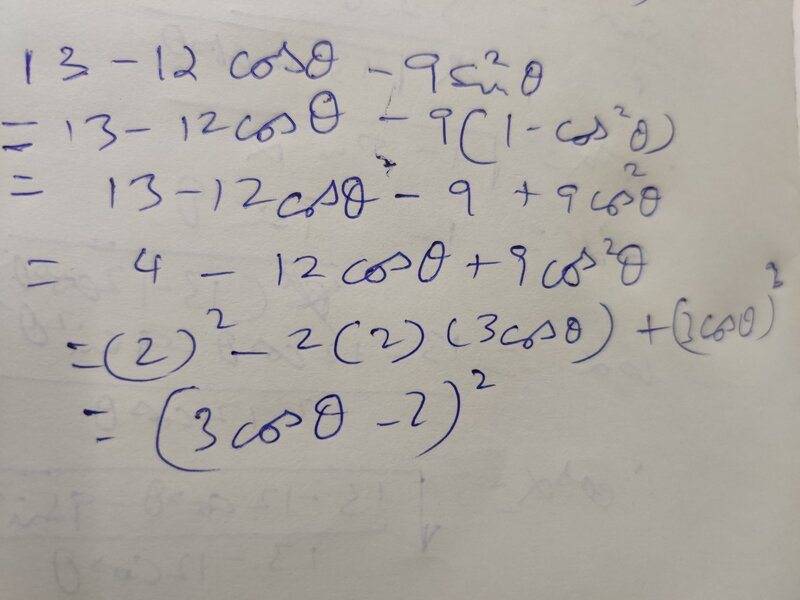 13 - 12 cosθ - 9 sin²θ
= 13 - 12 cosθ - 9(1 - cos²θ)
= 13 - 12 cosθ - 9 + 9 cos²θ
= 4 - 12 cosθ + 9 cos²θ
= (2)² - 2(2)(3cosθ) + (3cosθ)²
= (3 cosθ - 2)²